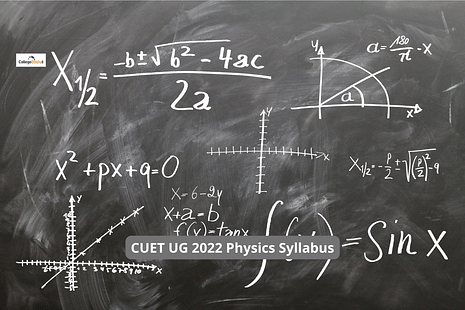 CollegeDekho
X₁/₂ = -b±√b²-4ac / 2a
y
a = 180/π · x
a
x
y
x
x²+px+q=0
X₁/₂ = -p/2 ± √(p/2)²-q
x=6-2y
x+a=b
f(x)=tanx
y
x
∫( )=Sin x
CUET UG 2022 Physics Syllabus